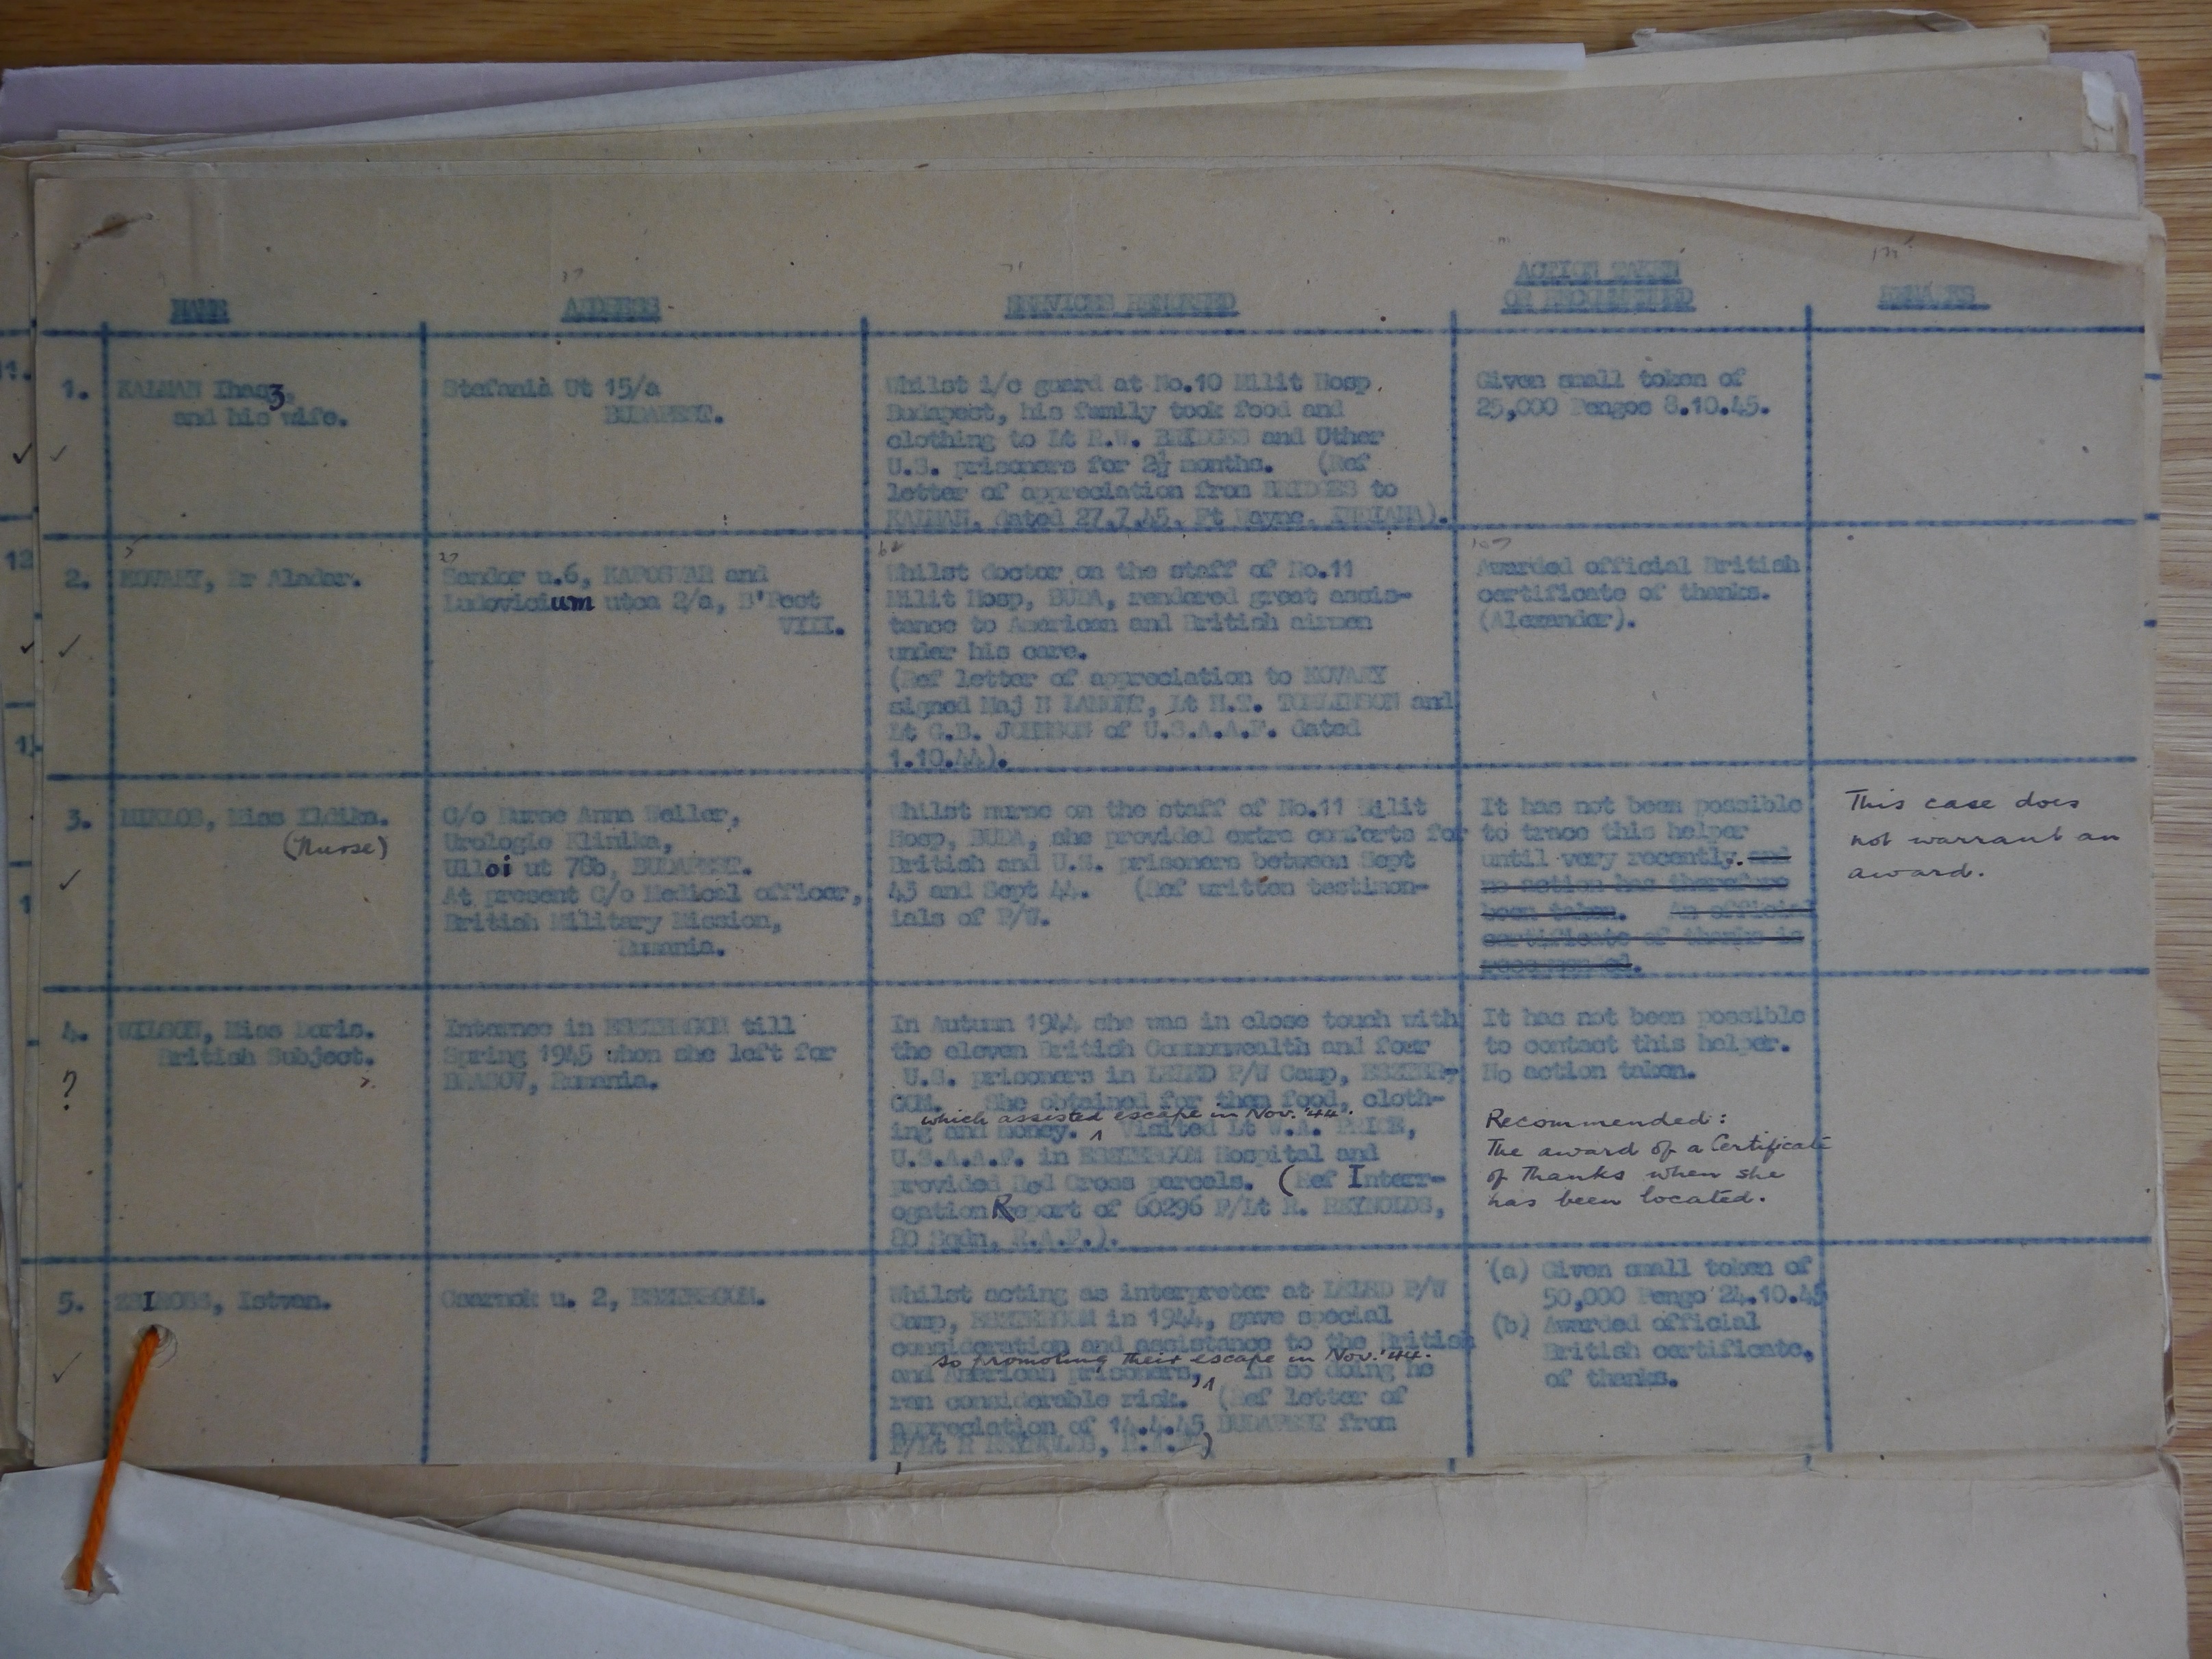 NAME
ADDRESS
SERVICES RENDERED
ACTION TAKEN
OR RECOMMENDED
REMARKS
11.
12
1
1
1.
KALMAN Ihasz,
and his wife.
Stefanià Ut 15/a
BUDAPEST.
Whilst i/c guard at No.10 Milit Hosp,
Budapest, his family took food and
clothing to Lt R.W. BRIDGES and Other
U.S. prisoners for 2½ months. (Ref
letter of appreciation from BRIDGES to
KALMAN, dated 27.7.45, Ft Wayne, INDIANA).
Given small token of
25,000 Pengos 8.10.45.
2.
KOVARY, Dr Aladar.
Sandor u.6, KAPOSVAR and
Ludovicium utca 2/a, B'Pest
VIII.
Whilst doctor on the staff of No.11
Milit Hosp, BUDA, rendered great assis-
tance to American and British airmen
under his care.
(Ref letter of appreciation to KOVARY
signed Maj H LAMONT, Lt H.T. TOMLINSON and
Lt G.B. JOHNSON of U.S.A.A.F. dated
1.10.44).
Awarded official British
certificate of thanks.
(Alexander).
3.
MIKLOS, Miss Ildiko.
(Nurse)
C/o Nurse Anna Weiler,
Urologic Klinika,
Ulloi ut 78b, BUDAPEST.
At present C/o Medical officer,
British Military Mission,
Rumania.
Whilst nurse on the staff of No.11 Milit
Hosp, BUDA, she provided extra comforts for
British and U.S. prisoners between Sept
43 and Sept 44. (Ref written testimon-
ials of P/W.
It has not been possible
to trace this helper
until very recently. and
no action has therefore
been taken. An official
certificate of thanks is
recommended.
This case does
not warrant an
award.
4.
WILSON, Miss Doris.
British Subject.
?
Internee in ESZTERGOM till
Spring 1945 when she left for
BRASOV, Rumania.
In Autumn 1944 she was in close touch with
the eleven British Commonwealth and four
U.S. prisoners in LELED P/W Camp, ESZTER-
GOM. She obtained for them food, cloth-
which assisted escape in Nov. '44.
ing and money. Visited Lt W.A. PRICE,
U.S.A.A.F. in ESZTERGOM Hospital and
provided Red Cross parcels. (Ref Interr-
ogation Report of 60296 F/Lt R. REYNOLDS,
80 Sqdn, R.A.F.).
It has not been possible
to contact this helper.
No action taken.
Recommended:
The award of a Certificate
of Thanks when she
has been located.
5.
Istvan.
Csarnok u. 2, ESZTERGOM.
Whilst acting as interpreter at LELED P/W
Camp, ESZTERGOM in 1944, gave special
consideration and assistance to the British
so promoting their escape in Nov. '44.
and American prisoners, in so doing he
ran considerable risk. (Ref letter of
appreciation of 14.4.45 BUDAPEST from
F/Lt R REYNOLDS, R.A.F.)
(a) Given small token of
50,000 Pengo 24.10.45
(b) Awarded official
British certificate,
of thanks.